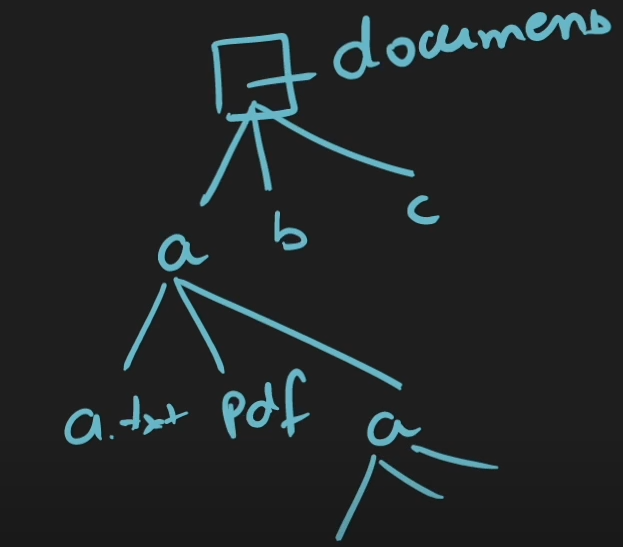 documens
a
b
c
a.txt
pdf
a